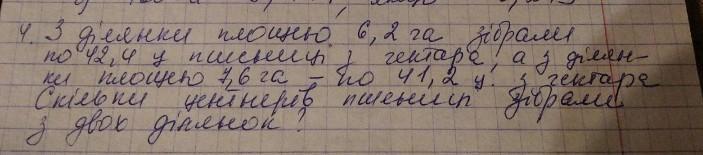 4. З ділянки площею 6,2 га зібрали
по 42,4 ц пшениці з гектара, а з ділян-
ки площею 7,6 га – по 41,2 ц з гектара
Скільки центнерів пшениці зібрали
з двох ділянок?